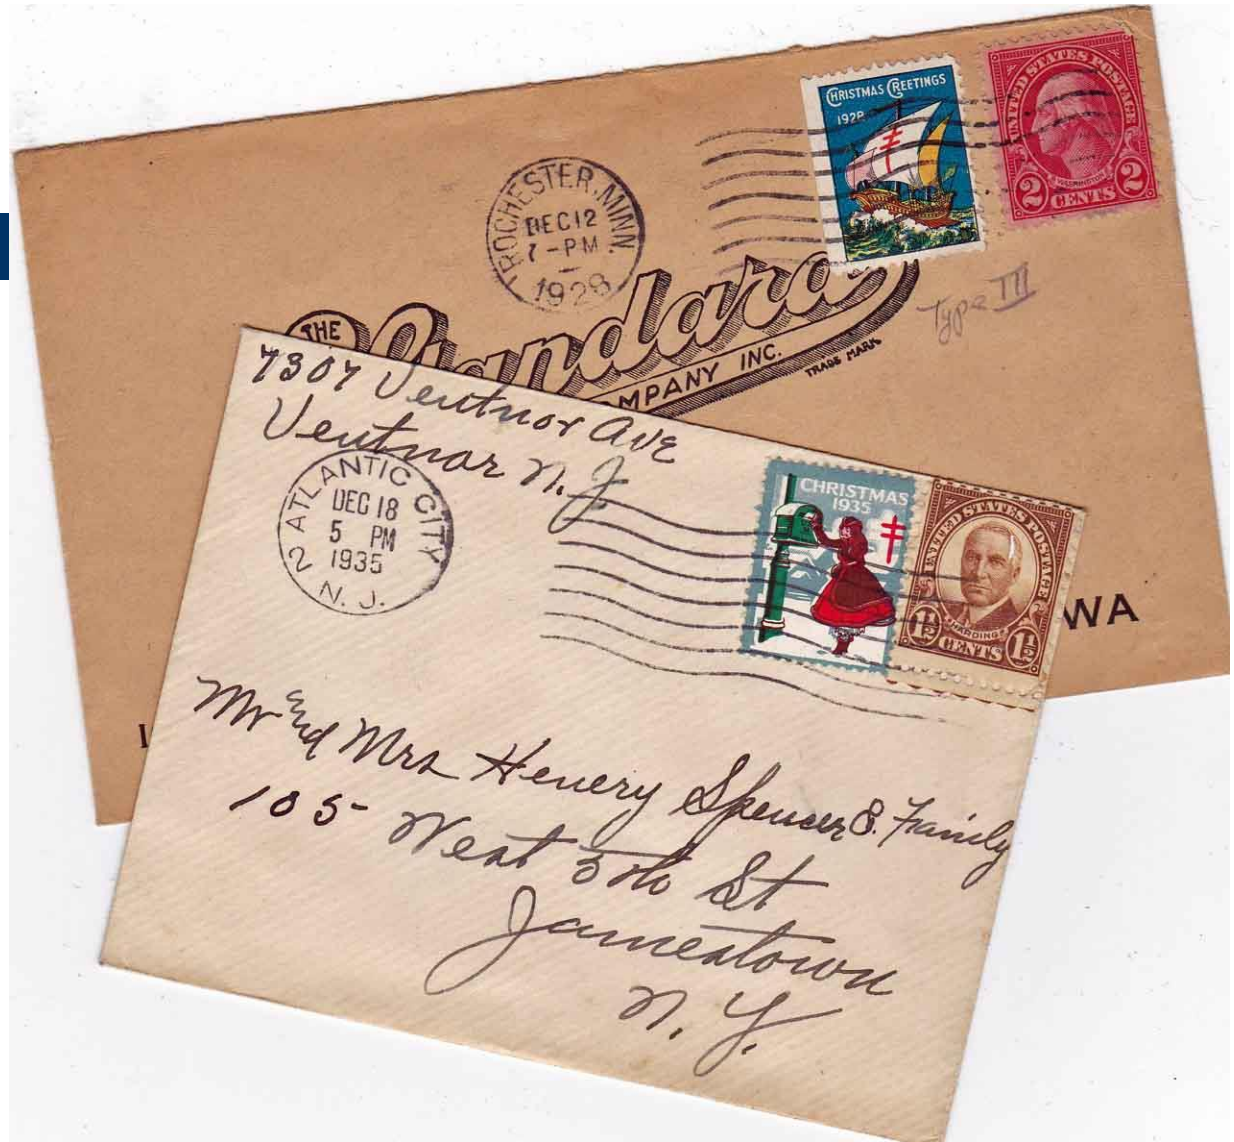 CHRISTMAS GREETINGS
1928
UNITED STATES POSTAGE
WASHINGTON
2 CENTS 2
ROCHESTER, MINN.
DEC 12
7 - PM
1928
Type III
THE
Standard
COMPANY INC.
TRADE MARK
WA
I
7307 Ventnor Ave
Ventnor N. J.
ATLANTIC CITY
DEC 18
5 PM
1935
2 N. J.
CHRISTMAS
1935
UNITED STATES POSTAGE
HARDING
1½ CENTS 1½
Mr and Mrs Henery Spencer & Family
105 West 5th St
Jamestown
N. Y.